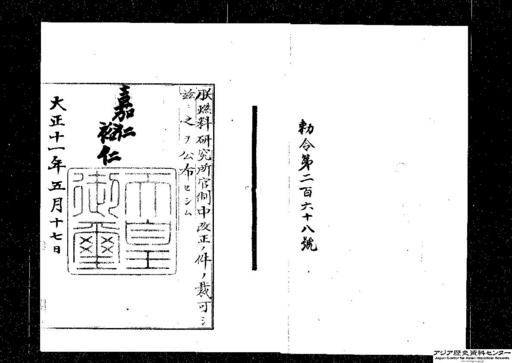 勅令第二百六十八號
朕燃料研究所官制中改正ノ件ヲ裁可シ
玆ニ之ヲ公布セシム
嘉仁
裕仁
天皇御璽
大正十一年五月十七日
アジア歴史資料センター
Japan Center for Asian Historical Records